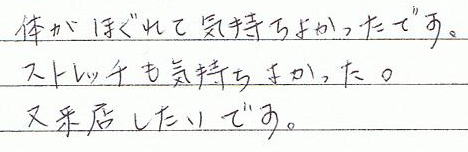 体がほぐれて気持ちよかったです。
ストレッチも気持ちよかった。
又来店したいです。